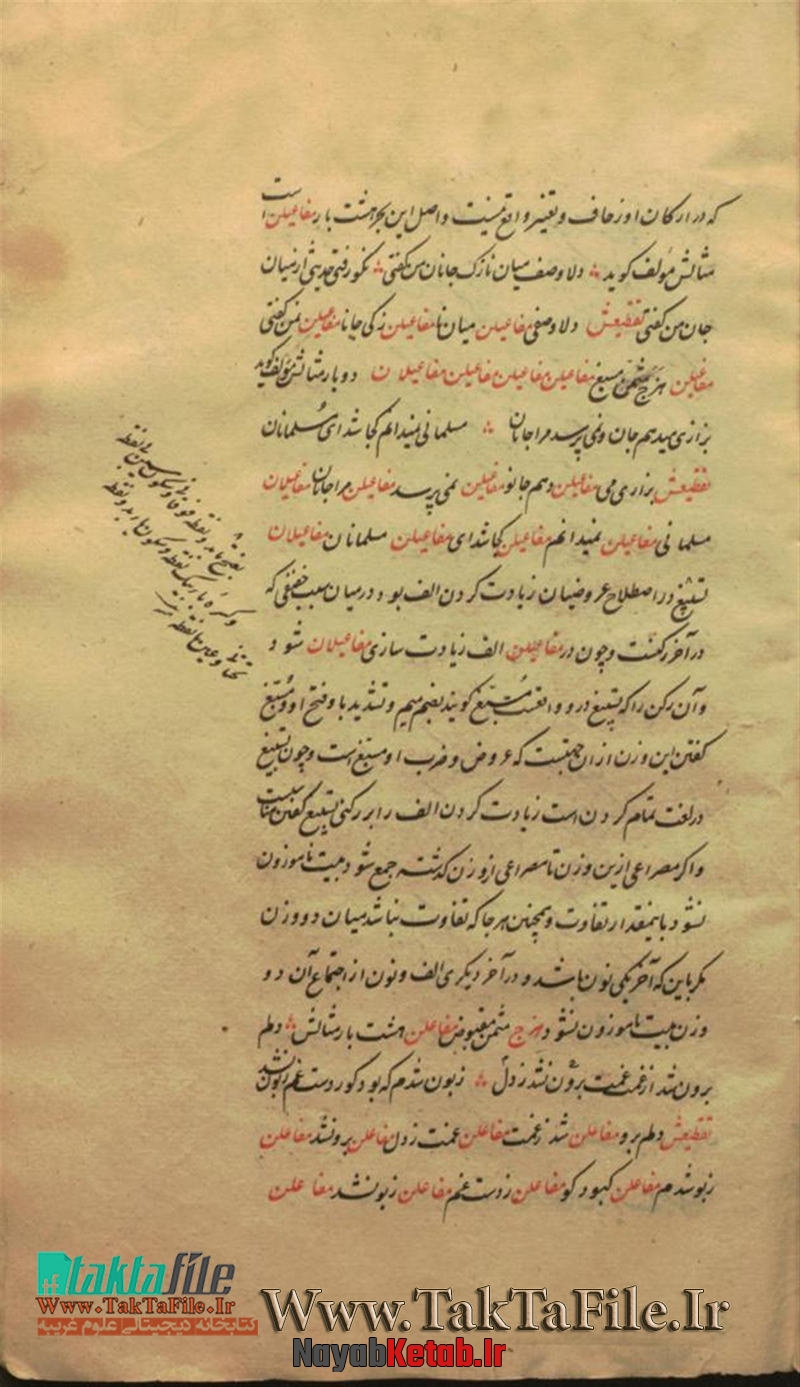 که در ارکان او زحاف و تغییر واقع نیست و اصل این بحر هشت بار مفاعیلن است
مثالش مؤلف کوید دلا وصف میان نازک جانان من کفتی نکو رفتی حدیثی از میان
جان من کفتی تقطیعش دلا وصفی مفاعیلن میان نا مفاعیلن زکی جانا مفاعیلن نمن کفتی
مفاعیلن هزج مثمن مسبغ مفاعیلن مفاعیلن مفاعیلن مفاعیلان دو بار مثالش مؤلف کوید
بزاری میدهم جان و نمی پرسد مرا جانان مسلمانی نمیدانم کجا شد ای مسلمانان
تقطیعش بزاری می مفاعیلن دهم جانو مفاعیلن نمی پرسد مفاعیلن مرا جانان مفاعیلان
مسلمانی مفاعیلن نمیدانم مفاعیلن کجا شد ای مفاعیلن مسلمانان مفاعیلان
تسبیغ در اصطلاح عروضیان زیادت کردن الف بود در میان سبب خفیفی که
در آخر رکنست و چون در مفاعیلن الف زیادت سازی مفاعیلان شود و
وآن رکن را که تسبیغ درو واقعست مسبغ کویند بضم میم و تشدید با و فتح او و مسبغ
کفتن این وزن از ان جهتست که عروض و ضرب او مسبغ است و چون تسبیغ
در لغت تمام کردن است زیادت کردن الف را بر رکنی تسبیغ کفتن مناسبست
واکر مصراعی ازین وزن با مصراعی از وزن کذشته جمع شود بیت ناموزون
نشود باینمقدار تفاوت و همچنین هر جا که تفاوت نباشد میان دو وزن
مکر باین که آخر یکی نون باشد و در آخر دیکری الف و نون از اجتماع آن دو
وزن بیت ناموزون نشود هزج مثمن مقبوض مفاعلن هشت بار مثالش دلم
برون شد از غمت غمت برون نشد ز دل زبون شدم که بود کو ز دست غم زبون نشد
تقطیعش دلم برو مفاعلن شد ز غمت مفاعلن غمت ز دل مفاعلن برو نشد مفاعلن
زبو شدم مفاعلن کبود کو مفاعلن ز دست غم مفاعلن زبو نشد مفاعلن
taktafile
Www.TakTaFile.Ir
کتابخانه دیجیتالی علوم غریبه
Www.TakTaFile.Ir
NayabKetab.Ir